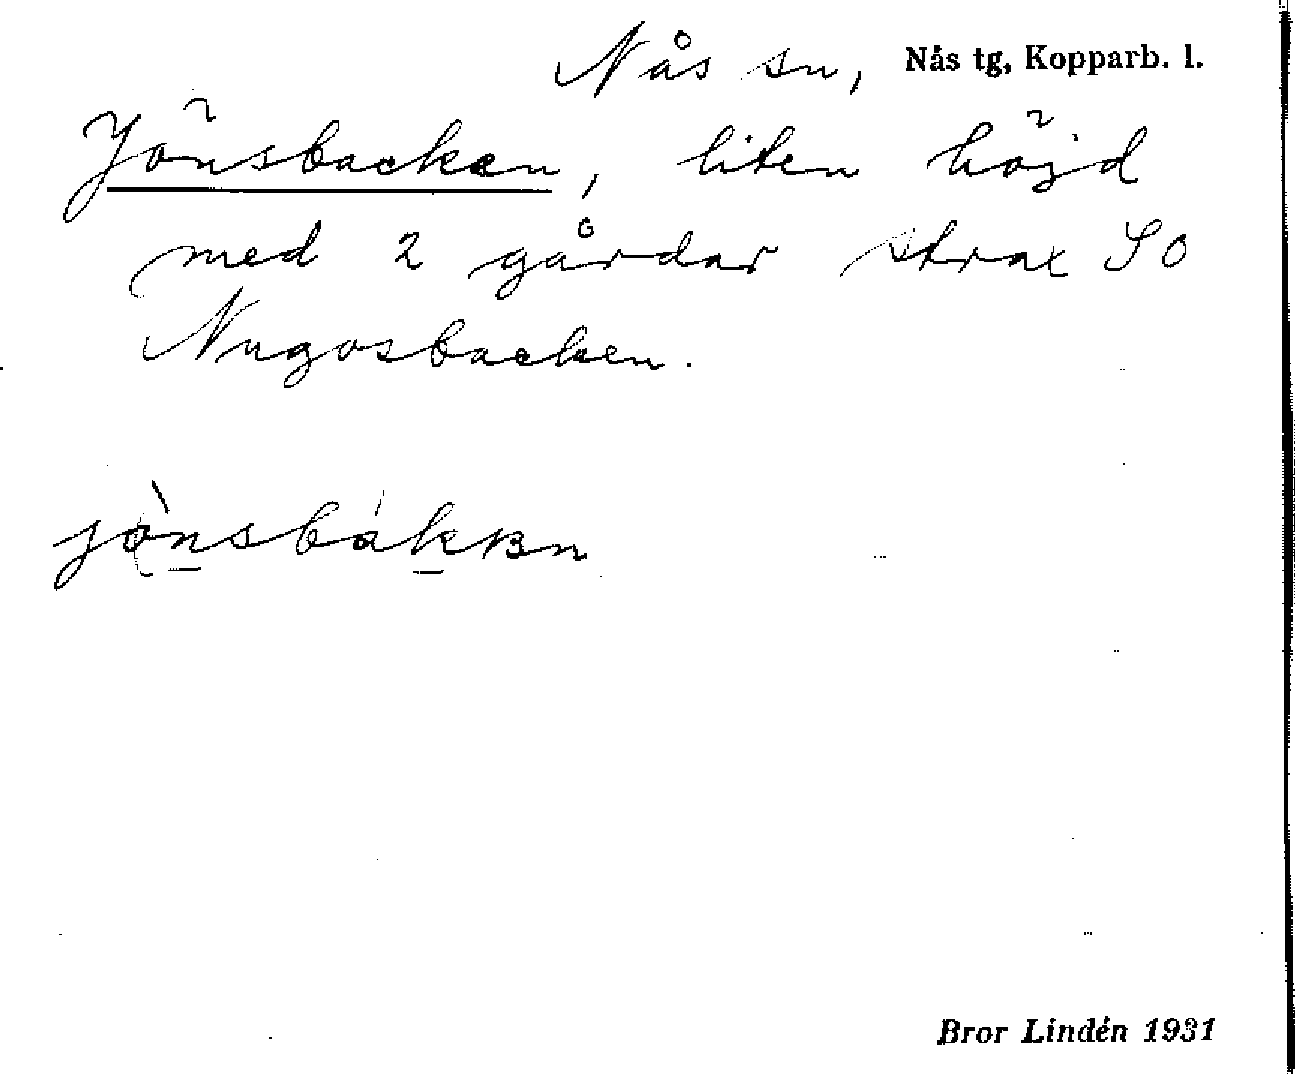 Nås sn, Nås tg, Kopparb. l.
Jönsbacken, liten höjd
med 2 gårdar strax SO
Nugosbacken.
Bror Lindén 1931